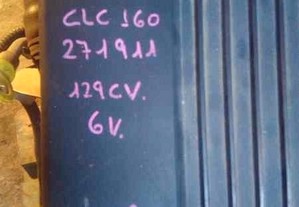 CLC 160
271911
129CV.
6V.